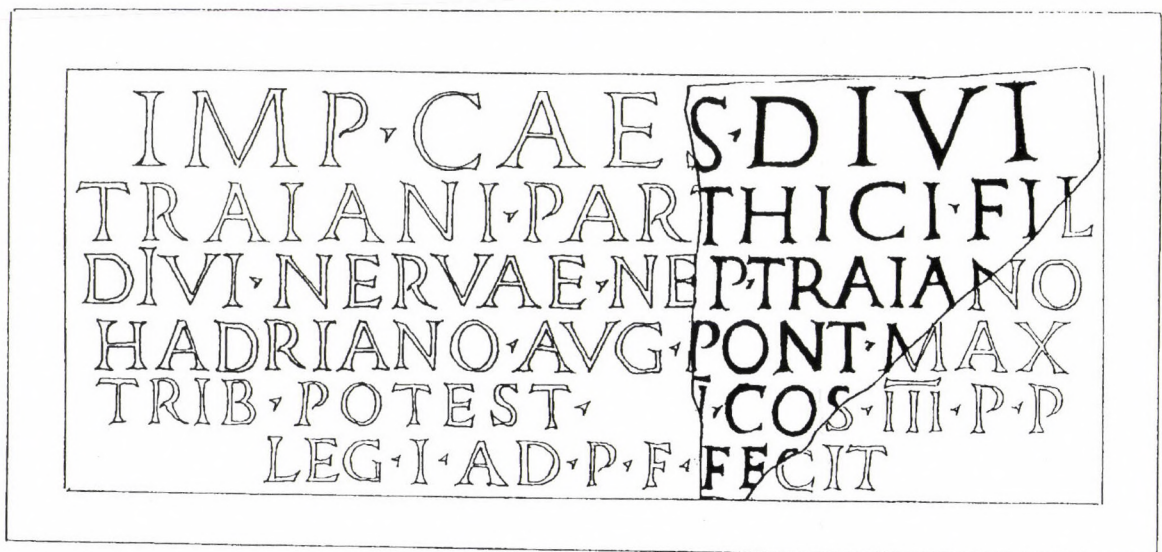 IMP·CAES·DIVI
TRAIANI·PARTHICI·FIL
DIVI·NERVAE·NEP·TRAIANO
HADRIANO·AVG·PONT·MAX
TRIB·POTEST· I·COS·III·P·P
LEG·I·AD·P·F·FECIT